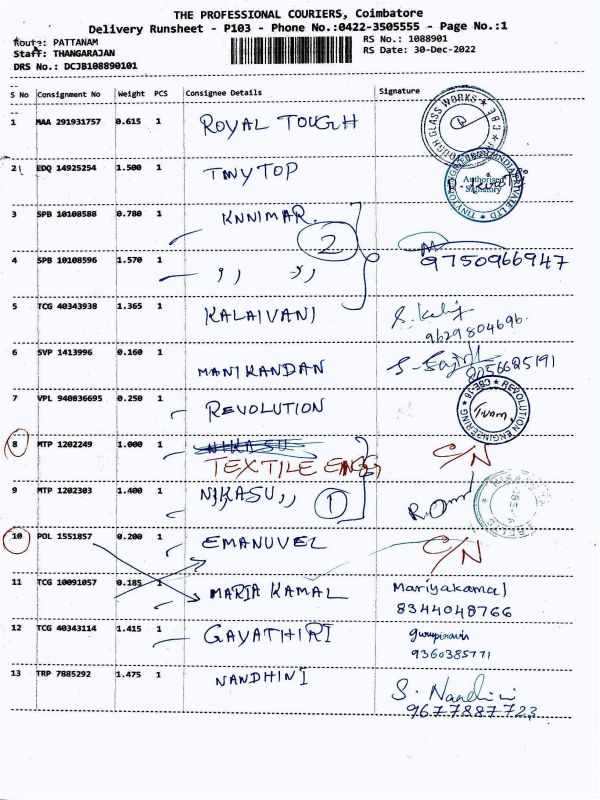 THE PROFESSIONAL COURIERS, Coimbatore
Delivery Runsheet - P103 - Phone No.:0422-3505555 - Page No.:1
Route: PATTANAM
RS No.: 1088901
Staff: THANGARAJAN
RS Date: 30-Dec-2022
DRS No.: DCJB108890101
S No Consignment No Weight PCS Consignee Details Signature
1 MAA 291931757 0.615 1 ROYAL TOUGH
2 EDQ 14925254 1.500 1 TINYTOP
Authorised
Signatory
3 SPB 10108588 0.780 1 KNNIMAR
2
4 SPB 10108596 1.570 1 ,, ,, 9750966947
5 TCG 40343938 1.365 1 KALAIVANI
9629804696
6 SVP 1413996 0.160 1 MANIKANDAN
8056625191
7 VPL 940836695 0.250 1 REVOLUTION
REVOLUTION ENGINEERING CBE-16
8 MTP 1202249 1.000 1 NIKASU C/N
TEXTILE ENGG
9 MTP 1202303 1.400 1 NIKASU ,, 1
10 POL 1551857 0.200 1 EMANUVEL C/N
11 TCG 10091057 0.185 1 MARIA KAMAL Mariyakamal
8344048766
12 TCG 40343114 1.415 1 GAYATHIRI
9360385771
13 TRP 7885292 1.475 1 NANDHINI S. Nandini
9677887723